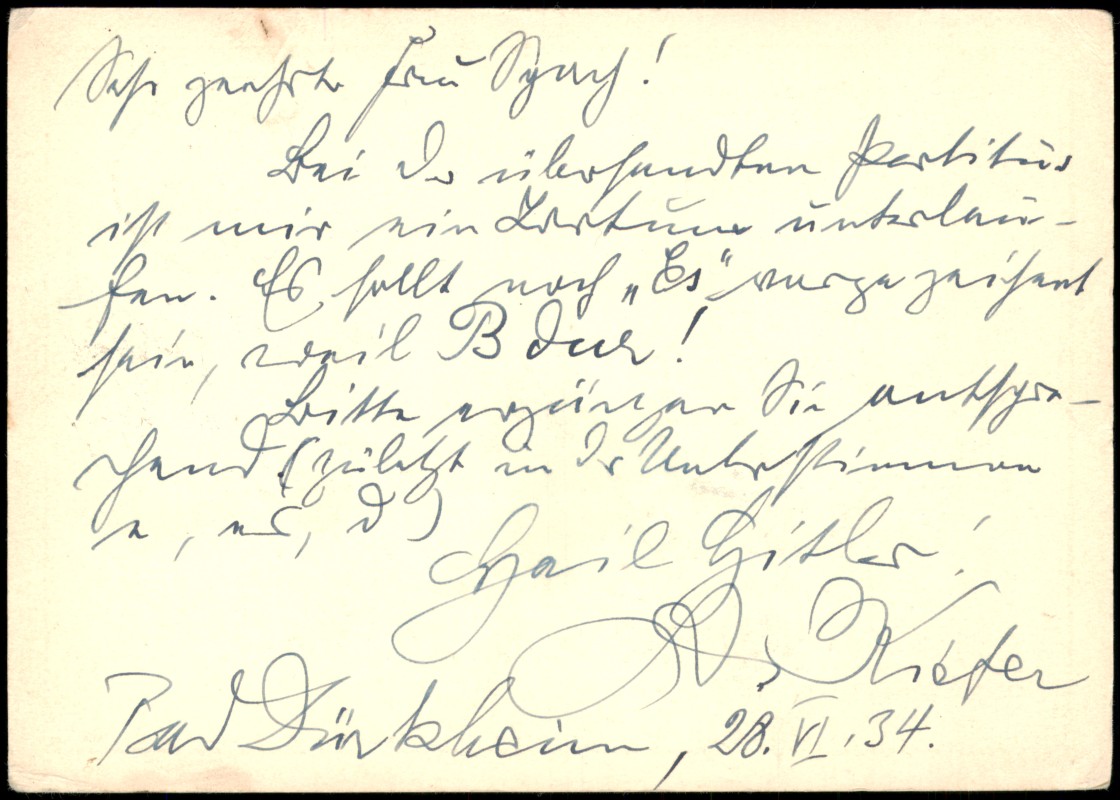 Sehr geehrte Frau Spach!
Bei der übersandten Partitur
ist mir ein Irrtum unterlau-
fen. Es sollt noch „Es“ vorgezeichent
sein, weil B dur!
Bitte ergänzen Sie entspre-
chend! (zuletzt in der Unterstimme
e, es, d)
Heil Hitler!
Kiefer
Bad Dürkheim, 28. VI. 34.